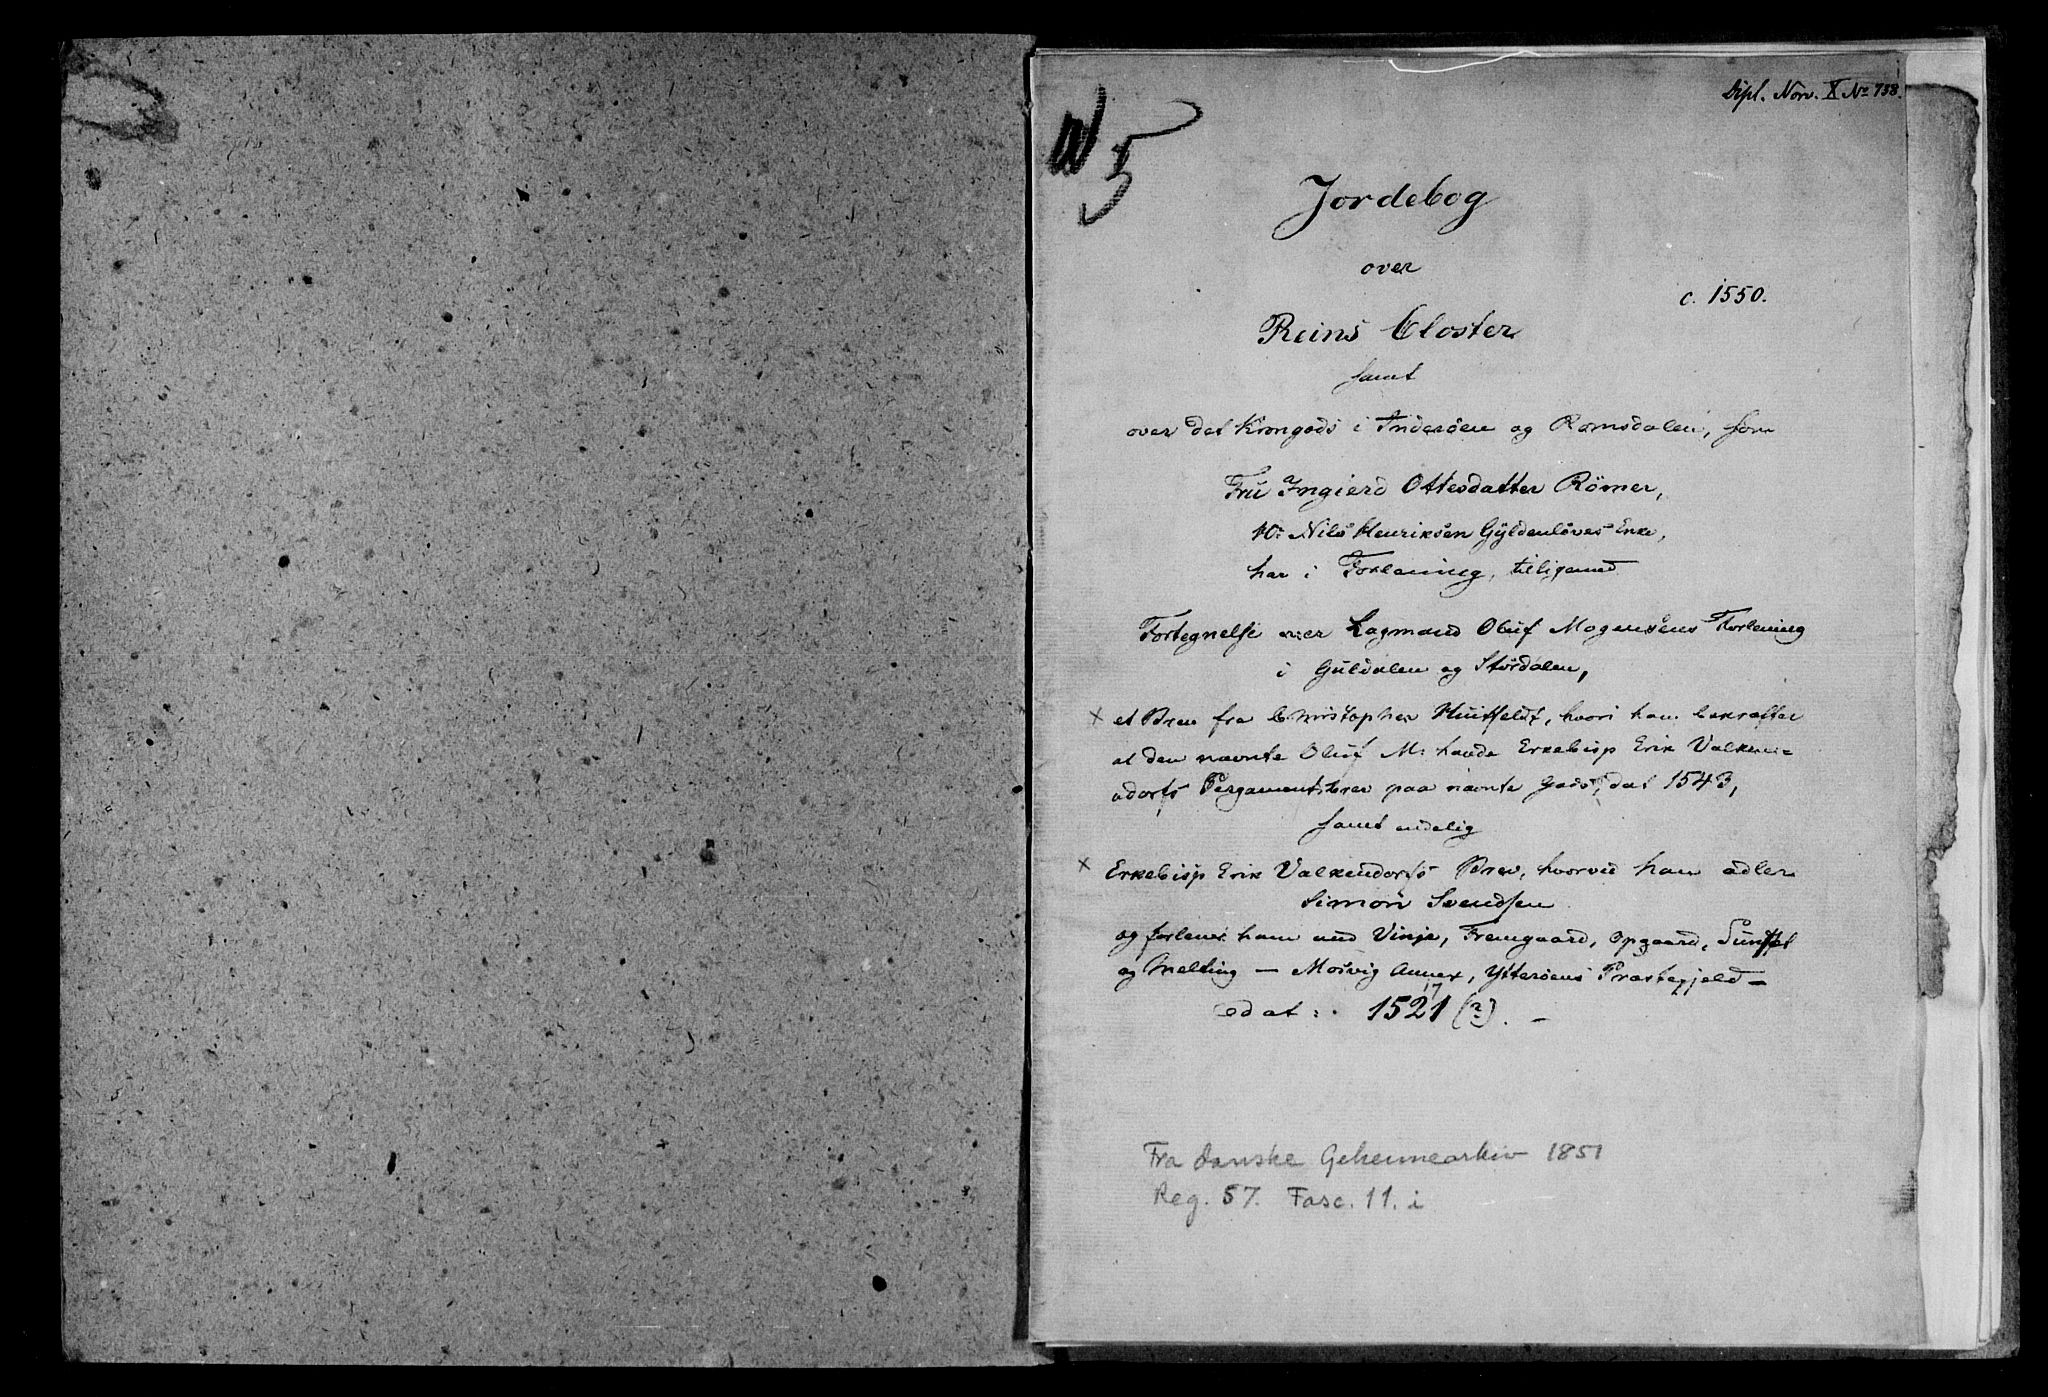 Dipl. Norv. X No 758.
N 5
Jordebog
over
c. 1550.
Reins Closter
samt
over det Krongods i Inderöen og Romsdalen, som
Fru Ingierd Ottesdatter Römer,
Hr Nils Henriksen Gyldenlöves Enke,
har i Forlening, tilligemed
Fortegnelse over Lagmand Oluf Mogensens Forlening
i Guldalen og Stördalen,
× et Brev fra Christopher Huitfeldt, hvori han bekræfter
at den nævnte Oluf M: havde Erkebisp Erik Valken=
dorfs Pergamentsbrev paa nævnte Gods, dat 1543,
samt endelig
× Erkebisp Erik Valkendorfs Brev, hvorved han adler
Simon Svendsen
og forlener ham med Vinje, Fremgaard, Opgaard,
og Melting — Mosvig Annex, Ytteröens Præstegjeld —
dat: 1521 (?). —
17
Fra danske Geheimearkiv 1851
Reg. 57. Fasc. 11. i